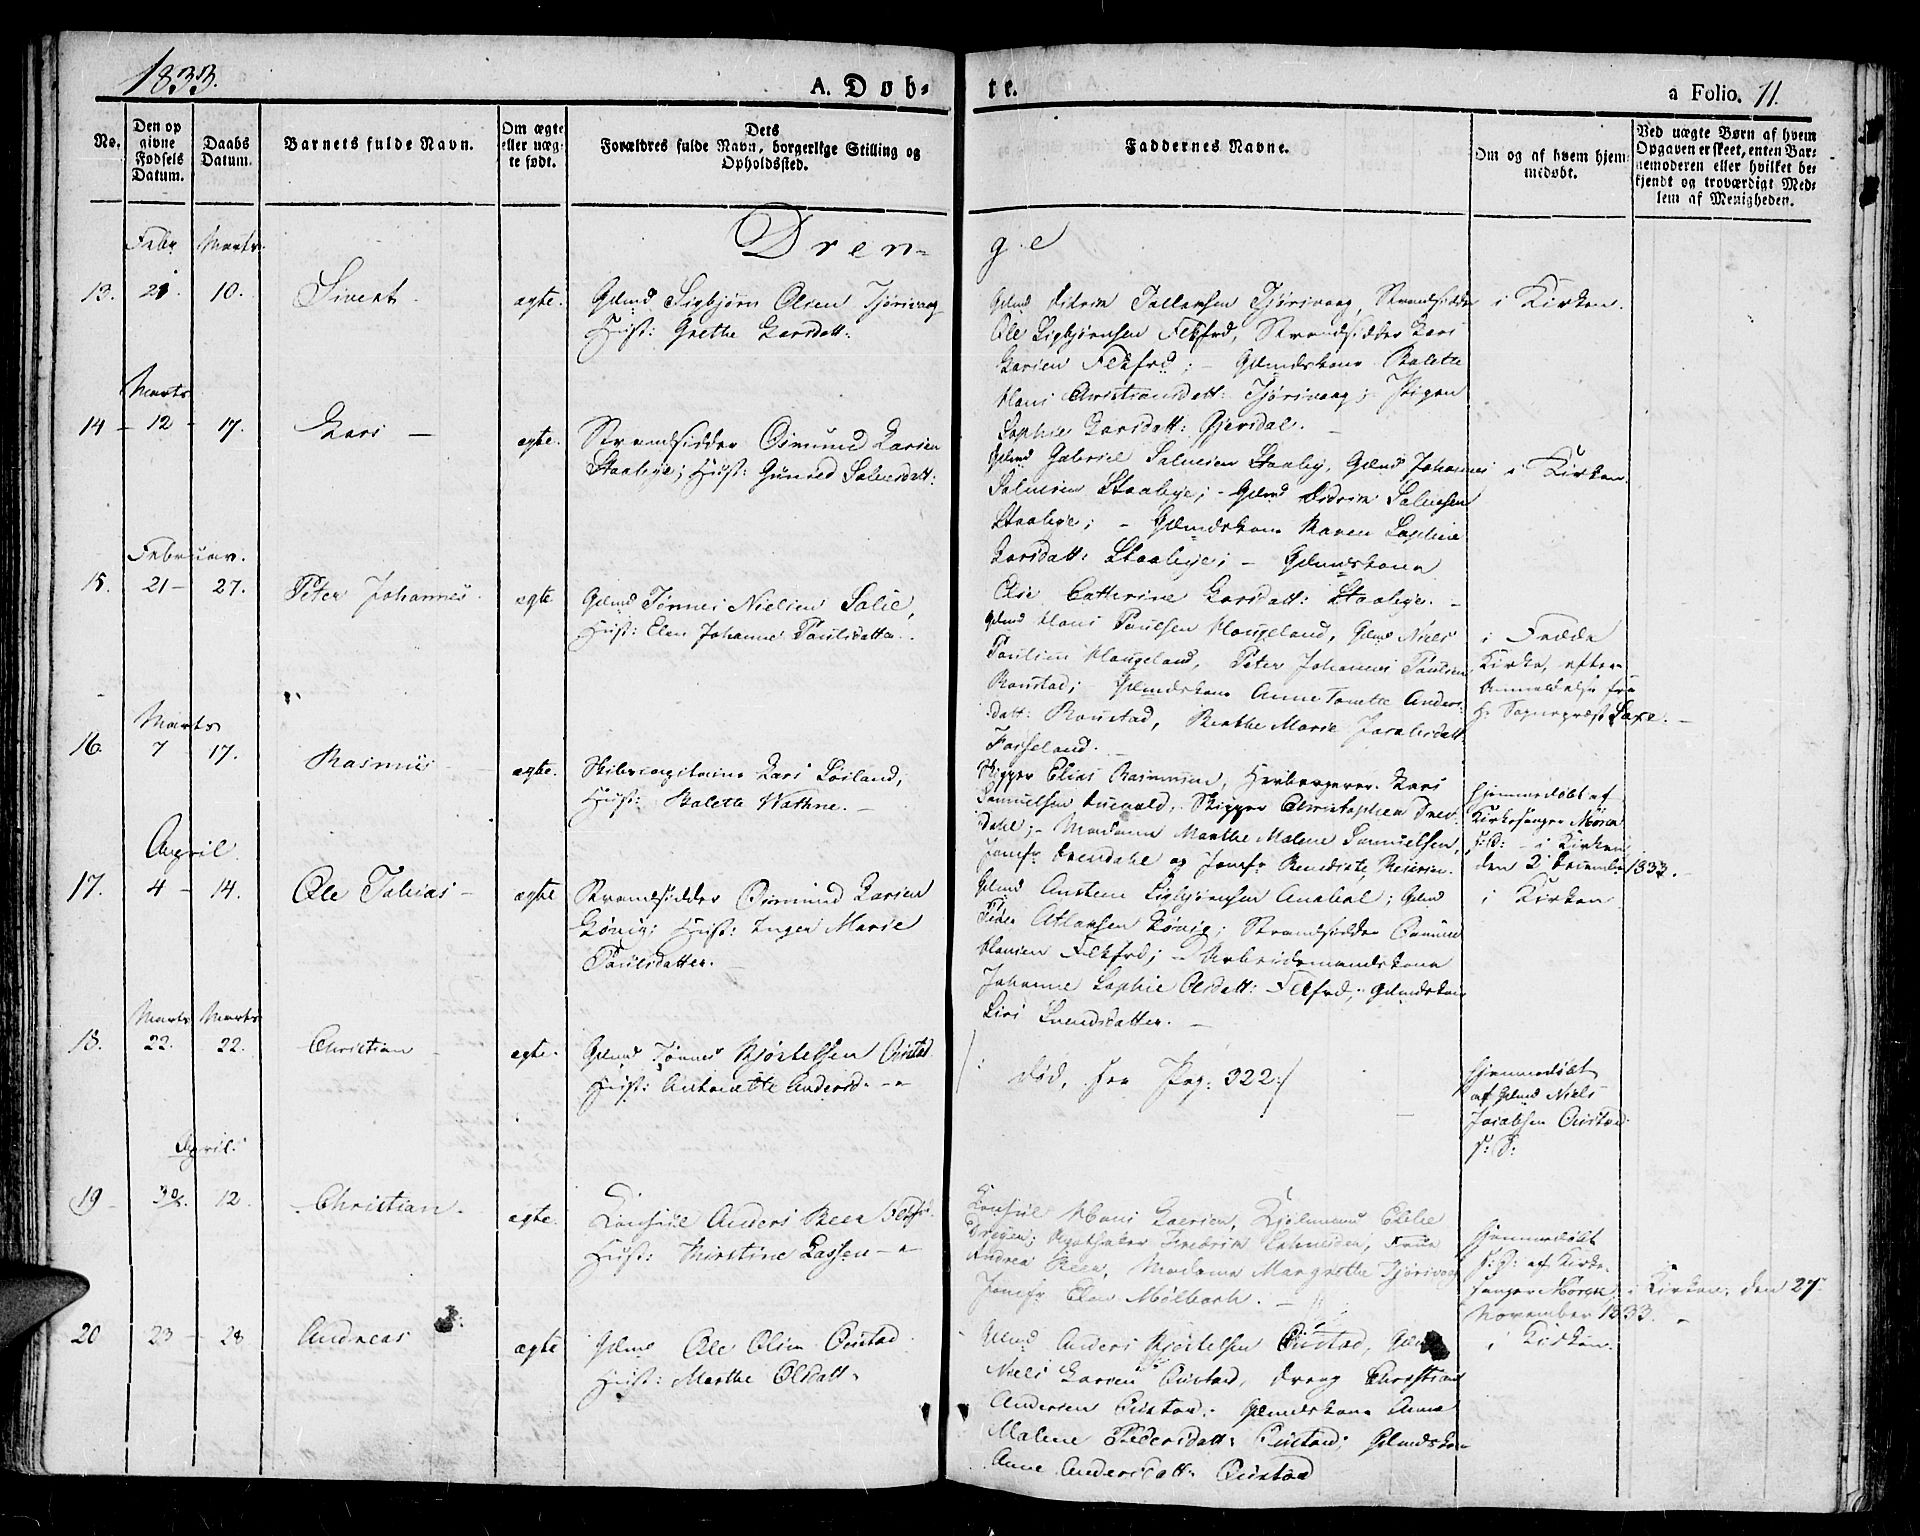 1833.
A. Døb-
te.
a Folio. 11.
No.
Den op
givne
Fødsels
Datum.
Daabs
Datum.
Barnets fulde Navn.
Om ægte
eller uæg-
te født.
Dets
Forældres fulde Navn, borgerlige Stilling og
Opholdssted.
Faddernes Navne.
Om og af hvem hjem-
medøbt.
Ved uægte Børn af hvem
Opgaven er skeet, enten Bar-
nemoderen eller hvilket be-
kjendt og troværdigt Med-
lem af Menigheden.
Febr Marts
Dren-
ge
13. 21. 10. Sivert ægte. Gdmd Sigbjørn Olsen Tjørsvaag
Hust: Grethe Larsdatt:
Gdmd Tallaksen Tjørsvaag, Strandsidder
Ole Sigbjørnsen Flekfrd, Strandsidder Lars
Larsen Flekfrd; - Gdmdskone Malette
Hans Christiansdatt: Tjørsvaag; Pigen
Sophie Larsdatt: Gjersdal. -
i Kirken.
Marts
14 - 12 - 17. Lars - ægte. Strandsidder Osmund Larsen
Staalege; Hust: Gunild Salvesdatt:
Gdmd Gabriel Salvesen Staaleg, Gdmd Johannes
Salvesen Staalege; - Gdmd Salvesen
Staalege; - Gdmdskone Maren Sophie
Larsdatt: Staalege; - Gdmdskone
Else Cathrine Larsdatt: Staalege. -
i Kirken.
Februar.
15. 21 - 27. Peter Johannes ægte Gdmd Tønnes Nielsen Salie,
Hust: Elen Johanne Paulsdatter.
Gdmd Hans Paulsen Haugeland, Gdmd Niels
Paulsen Haugeland, Peter Johannes Paulsen
Raustad; - Gdmdskone Anne Tonette Anders-
datt: Raustad, Berthe Marie Jacobsdatt:
Fosseland.
i Fede
Kirke, efter
Anmeldelse fra
Hr Sognepræst Saxe. -
Marts
16. 7 - 17. Rasmus - ægte. Skibscapitaine Lars Loiland,
Hust: Malette Wathne. -
Skipper Elias Rasmussen, Lars
Samuelsen, Skipper Christopher
dahl; - Madame Marthe Malene Samuelsen,
Jomfr og Jomfr Benedicte
Hjemmedøbt af
Kirkesanger Moren
p: D: - i Kirken
den 2 December 1833.
April
17. 4 - 14. Ole Tobias - ægte Strandsidder Osmund Larsen
Hust: Inger Marie
Paulsdatter. -
Gdmd Austen Sigbjørnsen Anabal; Gdmd
Peder Atlaksen; Strandsidder Osmund
Hansen Flekfrd; - Arbeidsmandskone
Johanne Sophie Olsdatt: Flekfrd; - Gdmdskone
Siri Svendsdatter. -
i Kirken
Marts Marts
18. 22. 22. Christian - ægte. Gdmd Tønnes Kjøstelsen Oustad
Hust: Antonette Andersd. - "
/: død, see Pag: 322 :/
Hjemmedøbt
af Gdmd Niels
Jacobsen Oustad
p: D:
April
19 - 30/ 12. Christian - ægte. Consul Anders Beer Flekfrd.
Hust: Kirstine Lassen - "
Consul Hans Larsen, Kjøbmand
Apotheker Fredrik, Frue
Andrea Beer, Madame Margrethe Tjørsvaag,
Jomfr Elen Mølbach. -
Hjemmedøbt
p: D: af Kirke-
sanger Moren, i Kirken, den 27
November 1833. -
20 23 - 28 Andreas ægte Gdmd Ole Olsen Oustad
Hust: Marthe Olsdatt:
Gdmd Anders Kjøstelsen Oustad, Gdmd
Niels Larsen Oustad, dreng Christian
Andersen Oustad. Gdmdskone Anne
Malene Pedersdatt: Oustad; Gdmdskone
Anne Andersdatt: Oustad
i Kirken.